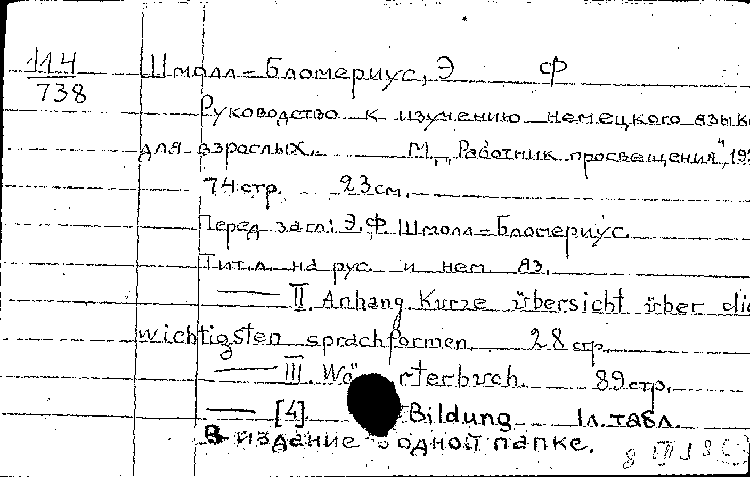 114
738
Шмолл=Бломериус, Э Ф
Руководство к изучению немецкого язык
для взрослых. М., „Работник просвещения", 19
74 стр. 23 см.
Перед загл: Э.Ф. Шмолл=Бломериус.
Тит.л на рус и нем яз.
—— II. Anhang. Kurze übersicht über die
wichtigsten sprachformen 28 стр.
—— III. Wörterbuch 89 стр.
—— [4] Bildung 1 л. табл.
В издание в одной папке.